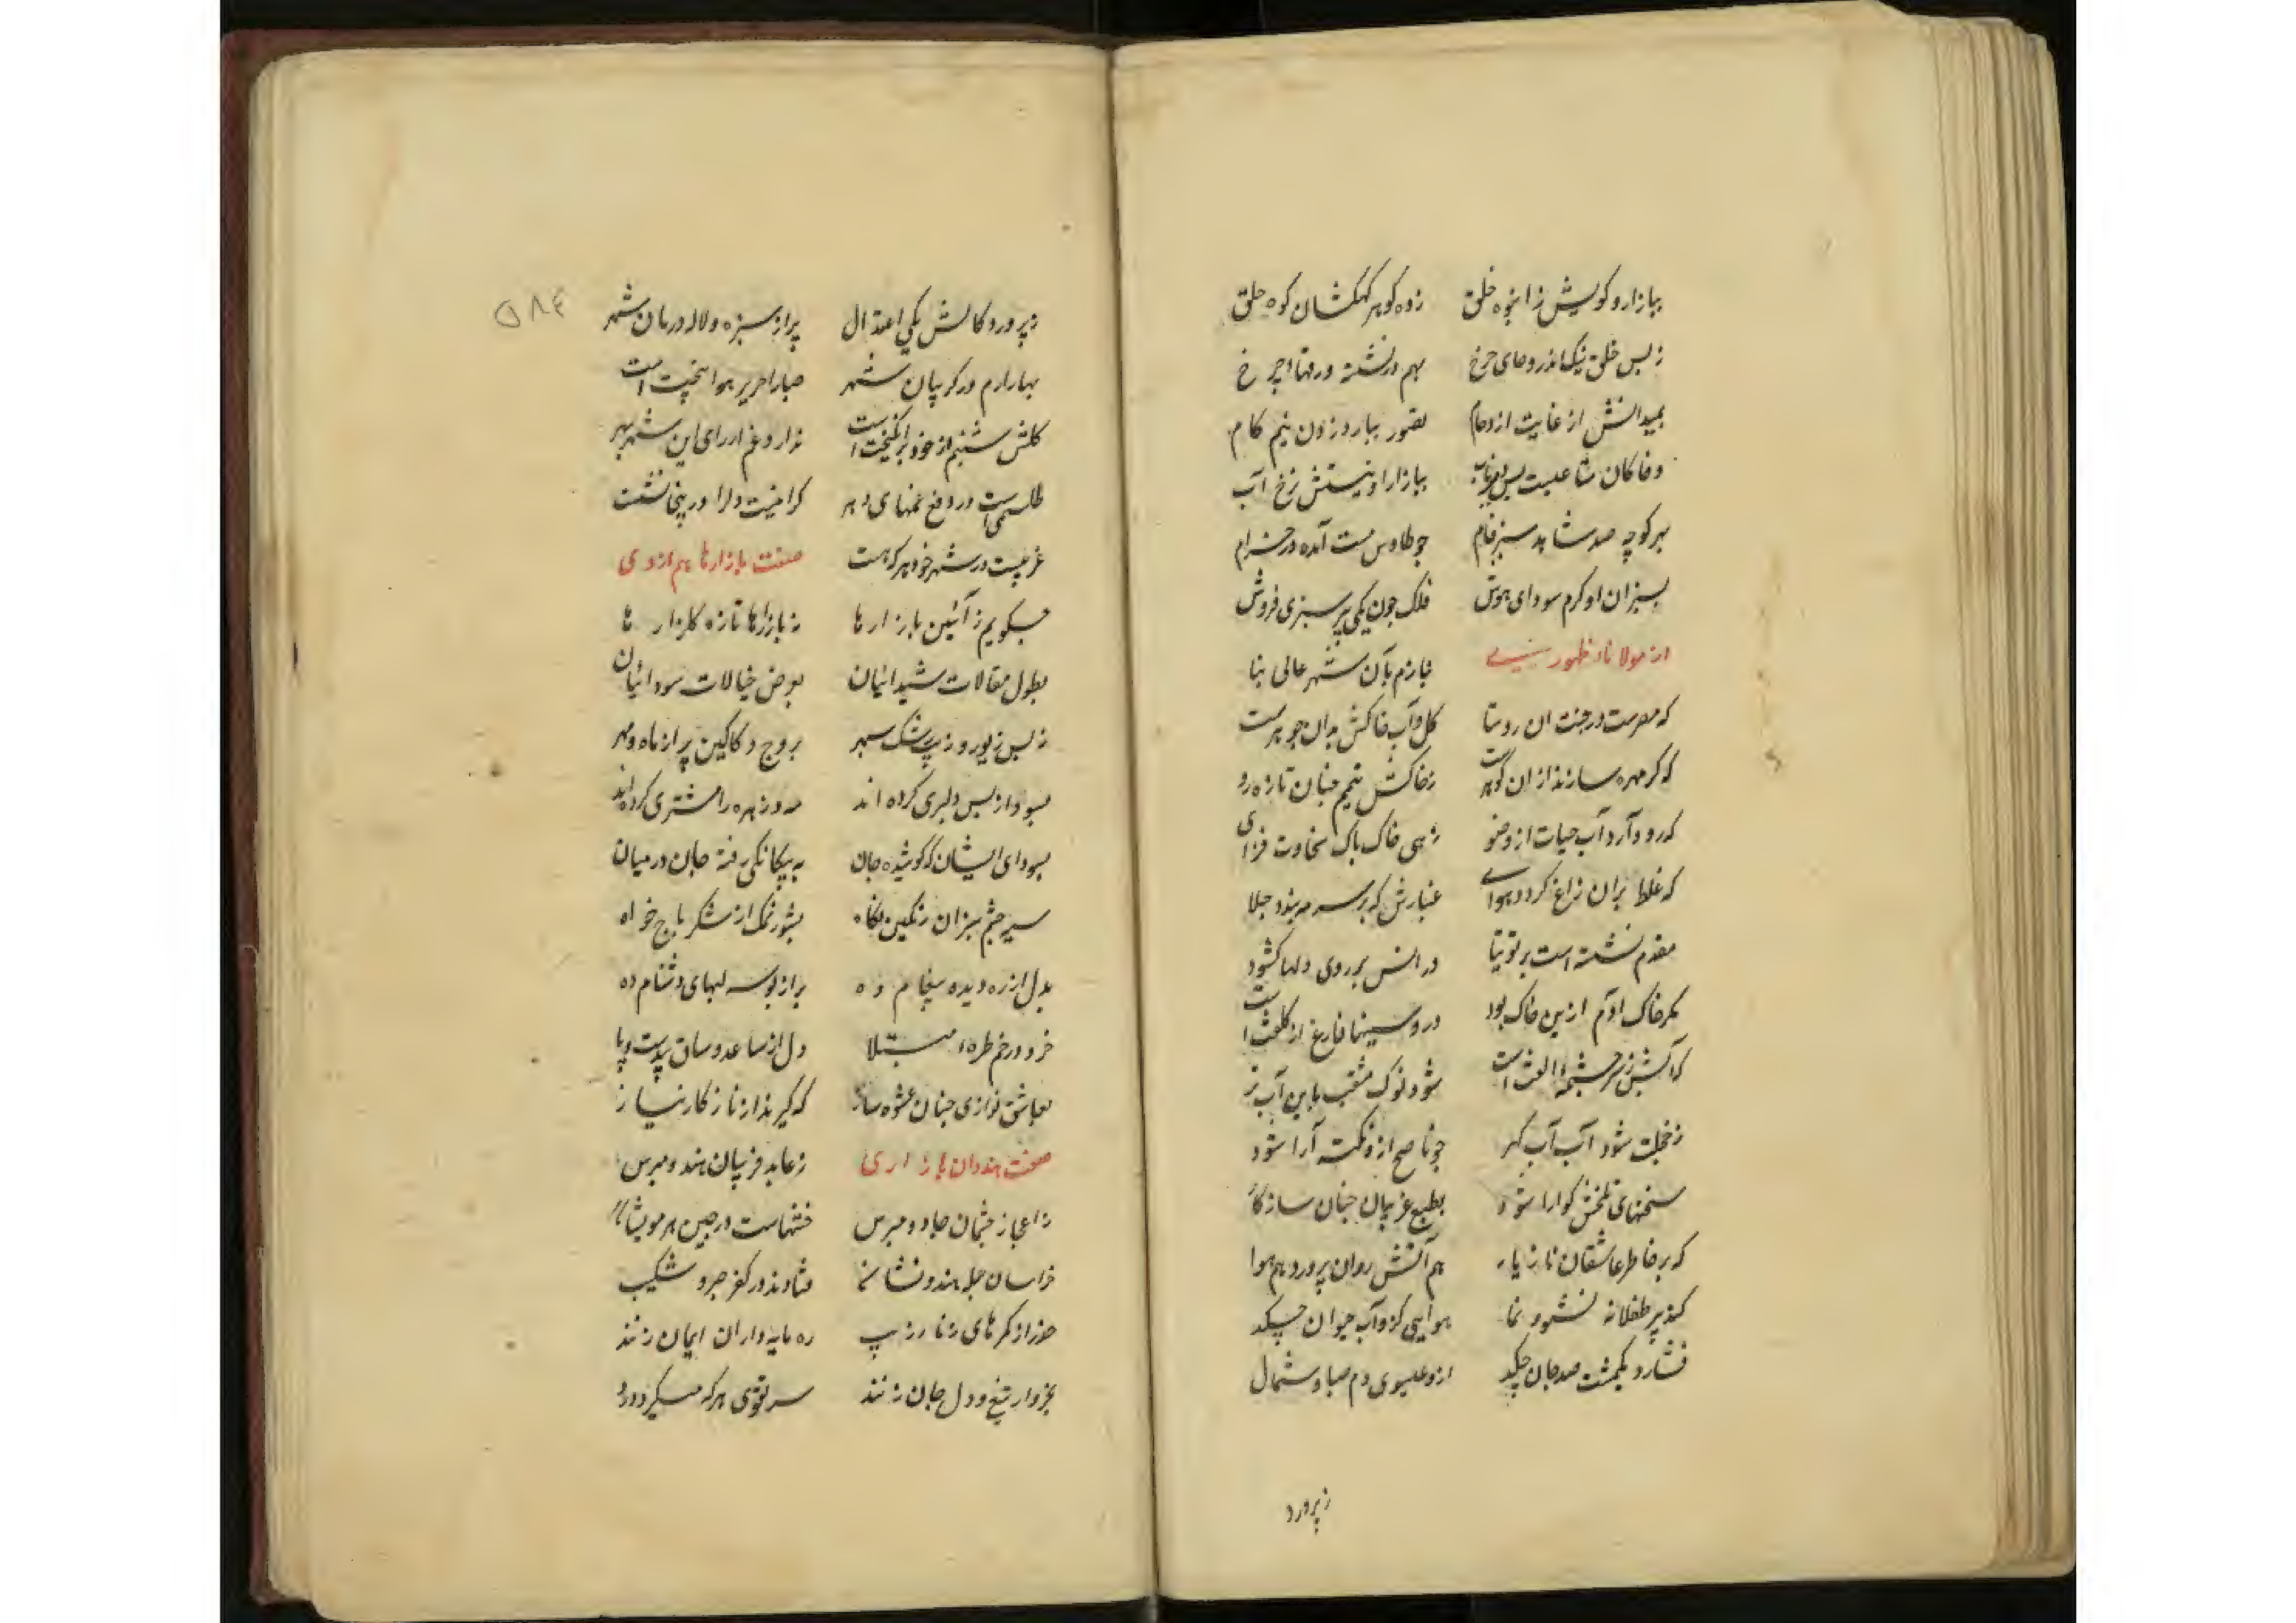 ببازار و کویش ز انبوه خلق    زده کوهر کهکشان کوه حلق
ز بس خلق نیک اندرو جای چرخ    بهم در نشسته ورقها چرخ
بمیدانش از غایت ازدحام    تصور بیارد زدن نیم کام
ببازار او نیستش نرخ آب
بهر کوچه صد شاهد سبزفام    چو طاوس مست آمده در خرام
بسبزان او کرم سودای هوش    فلک چون یکی پیر سبزی فروش
از مولانا ظهوری    بنازم بآن شهر عالی بنا
که مصرست در جنت آن روستا    کل و آب خاکش بدان جوهرست
که کر مهره سازند ازان کوهرست    ز خاکش تیمم چنان تازه رو
که رو دآرد آب حیات از وضو    زهی خاک پاک سخاوت فزای
که غلطد بران زاغ کردد همای    غبارش که بر سرمه بندد جلا
مقدم نشسته است بر توتیا    درانش بر روی دلها کشود
مکر خاک آدم ازین خاک بود    درو سینها فارغ از کلفت است
که آبش ز سرچشمه الفت است    شود نوک مثقب باین آب تر
ز خجلت شود آب آب کهر    چو ناصح ازو نکته آرا شود
سخنهای تلخش کوارا شود    بطبع غریبان چنان سازکار
که بر خاطر عاشقان ناز یار    هم آتش روان پرور و هم هوا
کند پیر طفلانه نشو و نما    هوایی کزو آب حیوان چکد
فشارد یکمشت صد جان چکد    ازو عیسوی دم صبا و شمال
زپرورد
۵۸۴
زپرورد کالش یکی اعتدال    پر از سبزه و لاله دامان شهر
بهار ارم در کریبان شهر    صبا را حریر هوا بیخت است
کلش شبنم از خود برانکیخت است    ندارد غم ارای این شهر بهر
طلسمی است در دفع غمهای دهر    کرامیت دلرا درینجا نشست
غریبست در شهر خود هر که هست    صفت بازارها هم از وی
چکویم ز آئین بازارها    ز بازارها تازه کلزارها
بطول مقالات شیدائیان    بعرض خیالات سودائیان
ز بس زیور و زیب رشک سپهر    بروج دکاکین پر از ماه و مهر
بسودا ز بس دلبری کرده اند    مه و زهره را مشتری کرده اند
بسودای ایشان که کوشیده جان    به بیکانکی رفته جان در میان
سیه چشم سبزان رنکین نکاه    بشور نمک از شکر باج خواه
بدل از ره دیده پیغام ده    بر از بوسه لبهای دشنام ده
خرد در خم طره مبتلا    دل از ساعد و ساق بیدست و پا
بعاشق نوازی چنان عشوه ساز    که کیرند از ناز کار نیاز
صفت هندوان بازاری    ز عابد فریبان هندو مپرس
ز اعجاز چشمان جادو مپرس
فتادند در کفر صبر و شکیب
حذر از کمرهای زنار زیب    ره مایه داران ایمان زنند
بخروار تیغ و دل جان زنند    سر تقوی هر که میکردد